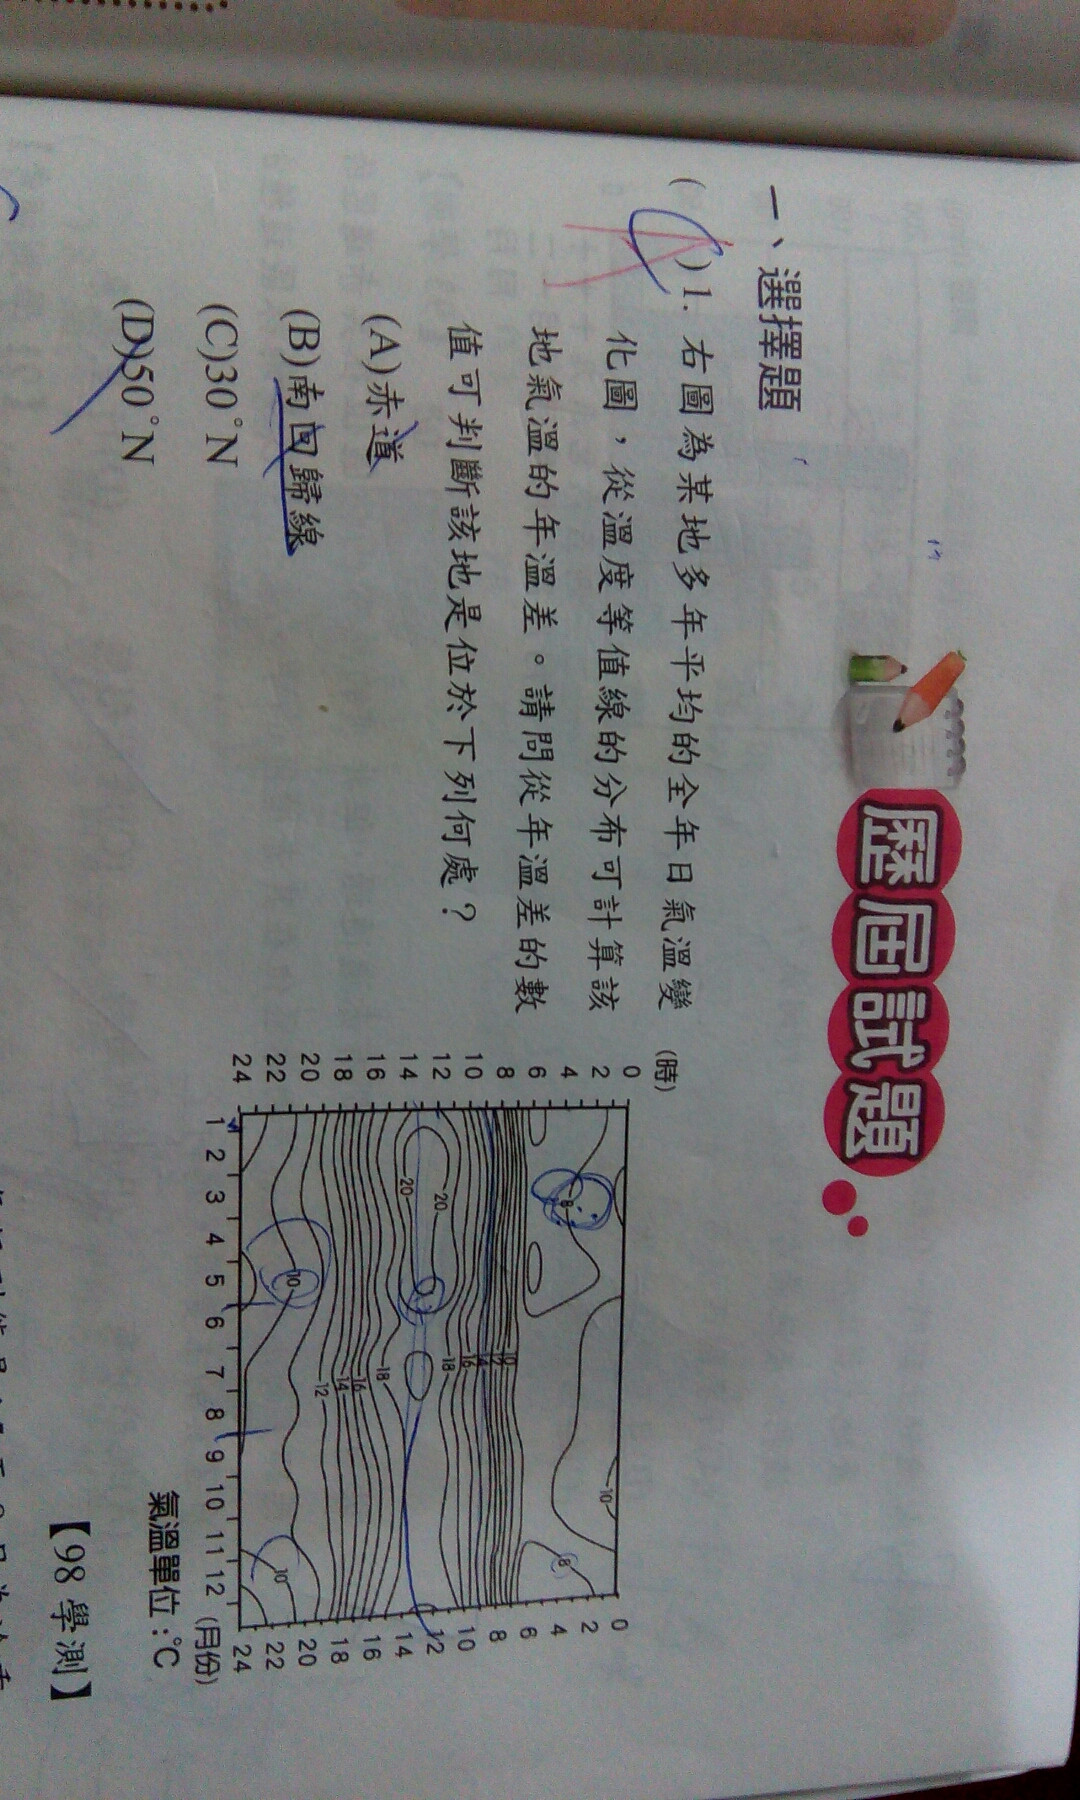 歷屆試題
一、選擇題
( )1. 右圖為某地多年平均的全年日氣溫變
化圖，從溫度等值線的分布可計算該
地氣溫的年溫差。請問從年溫差的數
值可判斷該地是位於下列何處？
(A)赤道
(B)南回歸線
(C)30°N
(D)50°N
(時)
0
2
4
6
8
10
12
14
16
18
20
22
24
8
20
20
10
10
12
14
16
18
18
16
14
12
10
8
10
0
2
4
6
8
10
12
14
16
18
20
22
24
1 2 3 4 5 6 7 8 9 10 11 12 (月份)
氣溫單位：℃
【98 學測】